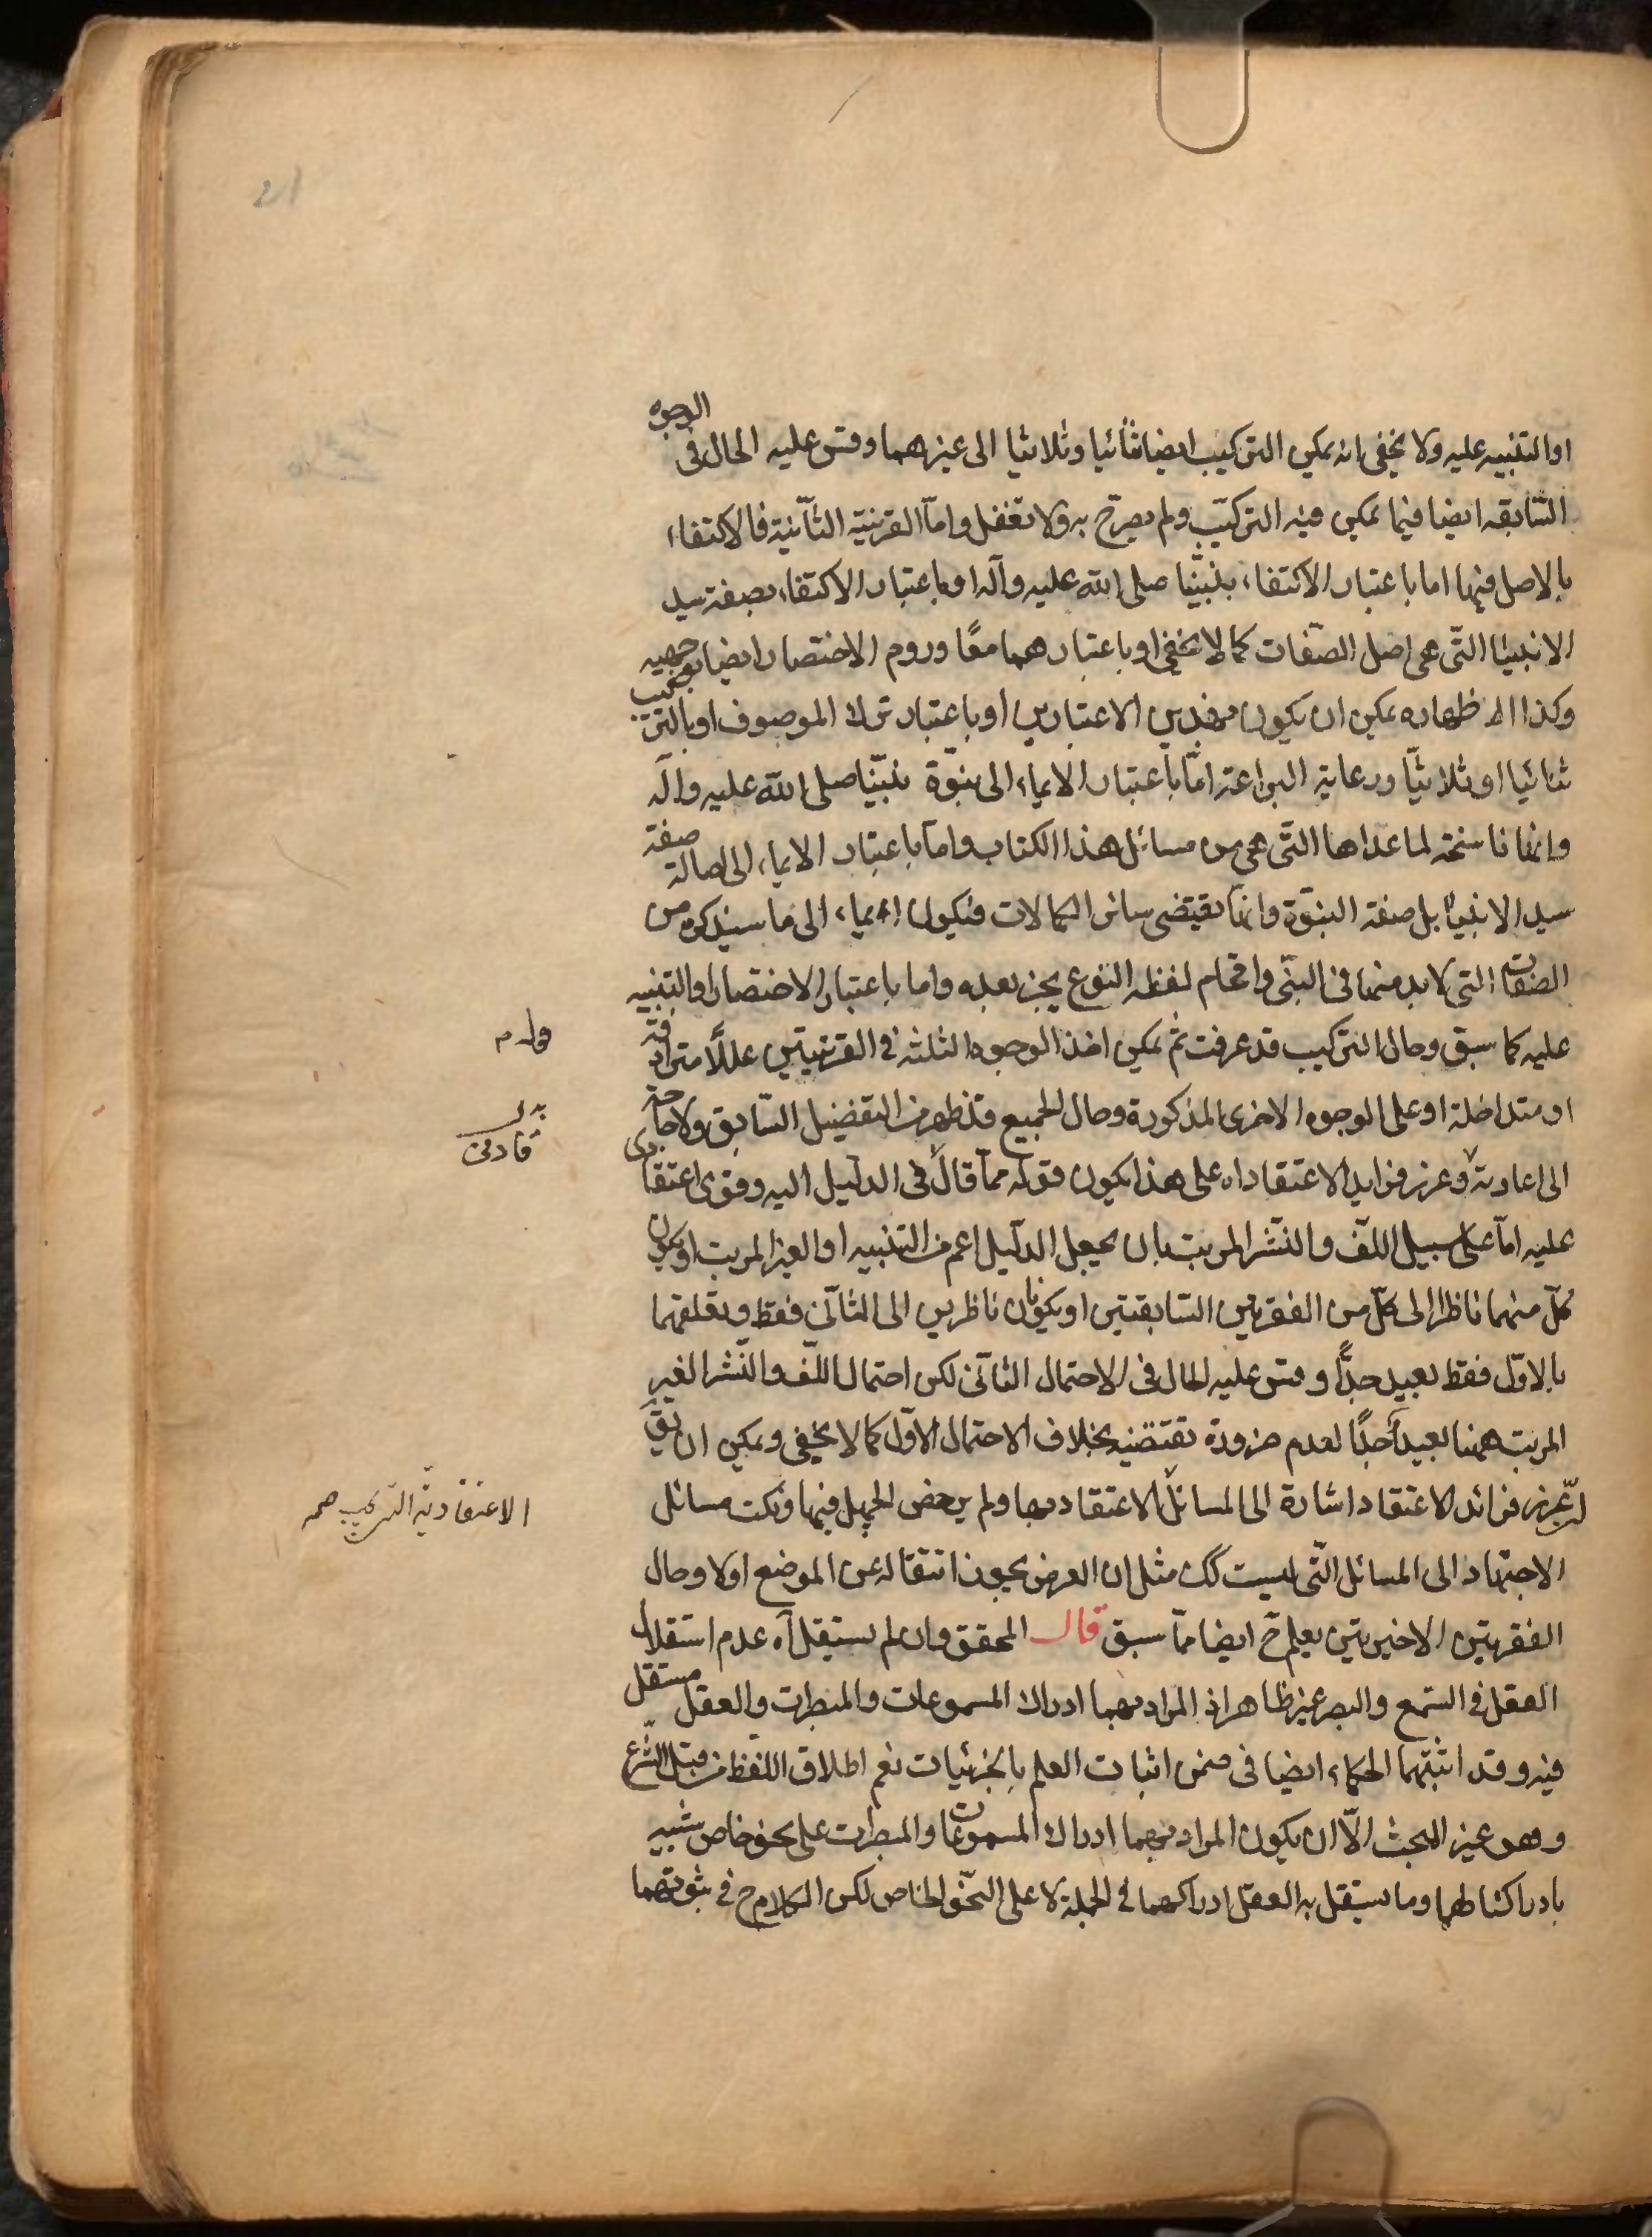 او التنبيه عليه ولا يخفى انه يمكن التركيب ايضا ثنائيا وثلاثيا الى غيرهما وقس عليه الحال فى الوجوه
السّابقه ايضا فيما يمكن فيه التركيب ولم يصرّح به ولا تغفل وامّا القرينة الثّانية فالاكتفاء
بالاصل فيها اما باعتبار الاكتفاء بنبيّنا صلى الله عليه وآله او باعتبار الاكتفاء بصفة سيد
الانبياء التّى هى اصل الصّفات كما لا يخفى او باعتبارهما معًا وروم الاختصار ايضا بوجهيه
وكذا اظهاره يمكن ان يكون بهذين الاعتبارين او باعتبار ترك الموصوف او بالتركيب
ثنائيا او ثلاثيّا ورعاية البراعة امّا باعتبار الايماء الى نبوّة نبيّنا صلى الله عليه وآله
وانها ناسخة لما عداها التّى هى من مسائل هذا الكتاب وامّا باعتبار الايماء الى اصالة صفة
سيد الانبياء بل صفة النبوّة وانها تقتضى سائر الكمالات فيكون ايماء الى ما سيذكره من
الصفات التى لا بد منها فى النبّى واقحام لفظ النوع يجز بعده واما باعتبار الاختصار او التنبيه
عليه كما سبق وحال التركيب قد عرفت ثم يمكن اخذ الوجوه الثلثة فى القرينتين عللًا مترادفة
او متداخلة او على الوجوه الاخرى المذكورة وحال الجميع قد ظهر من التفضيل السّابق ولا حاجة
الى اعادته وعزيز فرايد الاعتقاد اه على هذا يكون قوله مما قال فى الدليل اليه وقوى اعتقادى
عليه امّا على سبيل اللّف والنّشر المرتب بان يجعل الدّليل اعم من التنبيه او الغير المرتب او يكون
كلّ منهما ناظرا الى كلّ من الفقرتين السّابقتين او يكونان ناظرين الى الثّانى فقط وتعلقهما
بالاوّل فقط بعيد جدًّا وقس عليه الحال فى الاحتمال الثّانى لكن احتمال اللّف والنّشر الغير
المرتب ههنا بعيدًا جدًا لعدم ضرورة تقتضيه بخلاف الاحتمال الاوّل كما لا يخفى ويمكن ان يق
انّ عزيز فرائد الاعتقاد اشارة الى المسائل الاعتقاد بها ولم يرخص الجهل فيها ونكت مسائل
الاجتهاد الى المسائل التّى ليست كك مثل ان العرض يجوز انتقاله عن الموضع اولا وحال
الفقرتين الاخيرتين يعلم ح ايضا ممّا سبق قال المحقق وان لم يستقل آه عدم استقلال
العقل فى السّمع والبصر غير ظاهر اذ المراد بهما ادراك المسموعات والمبصرات والعقل مستقل
فيه وقد اثبتهما الحكماء ايضا فى ضمن اثبات العلم بالجزئيات نعم اطلاق اللفظ من قبل الشّرع
وهو غير البحث الّا ان يكون المراد بهما ادراك المسموعات والمبصرات على نحو خاص شبيه
بادراكنا لهما وما يستقل به العقل ادراكهما فى الجملة لا على النّحو الخاص لكن الكلام ح فى ثبوتهما
الاعتقادية التى يجب صح